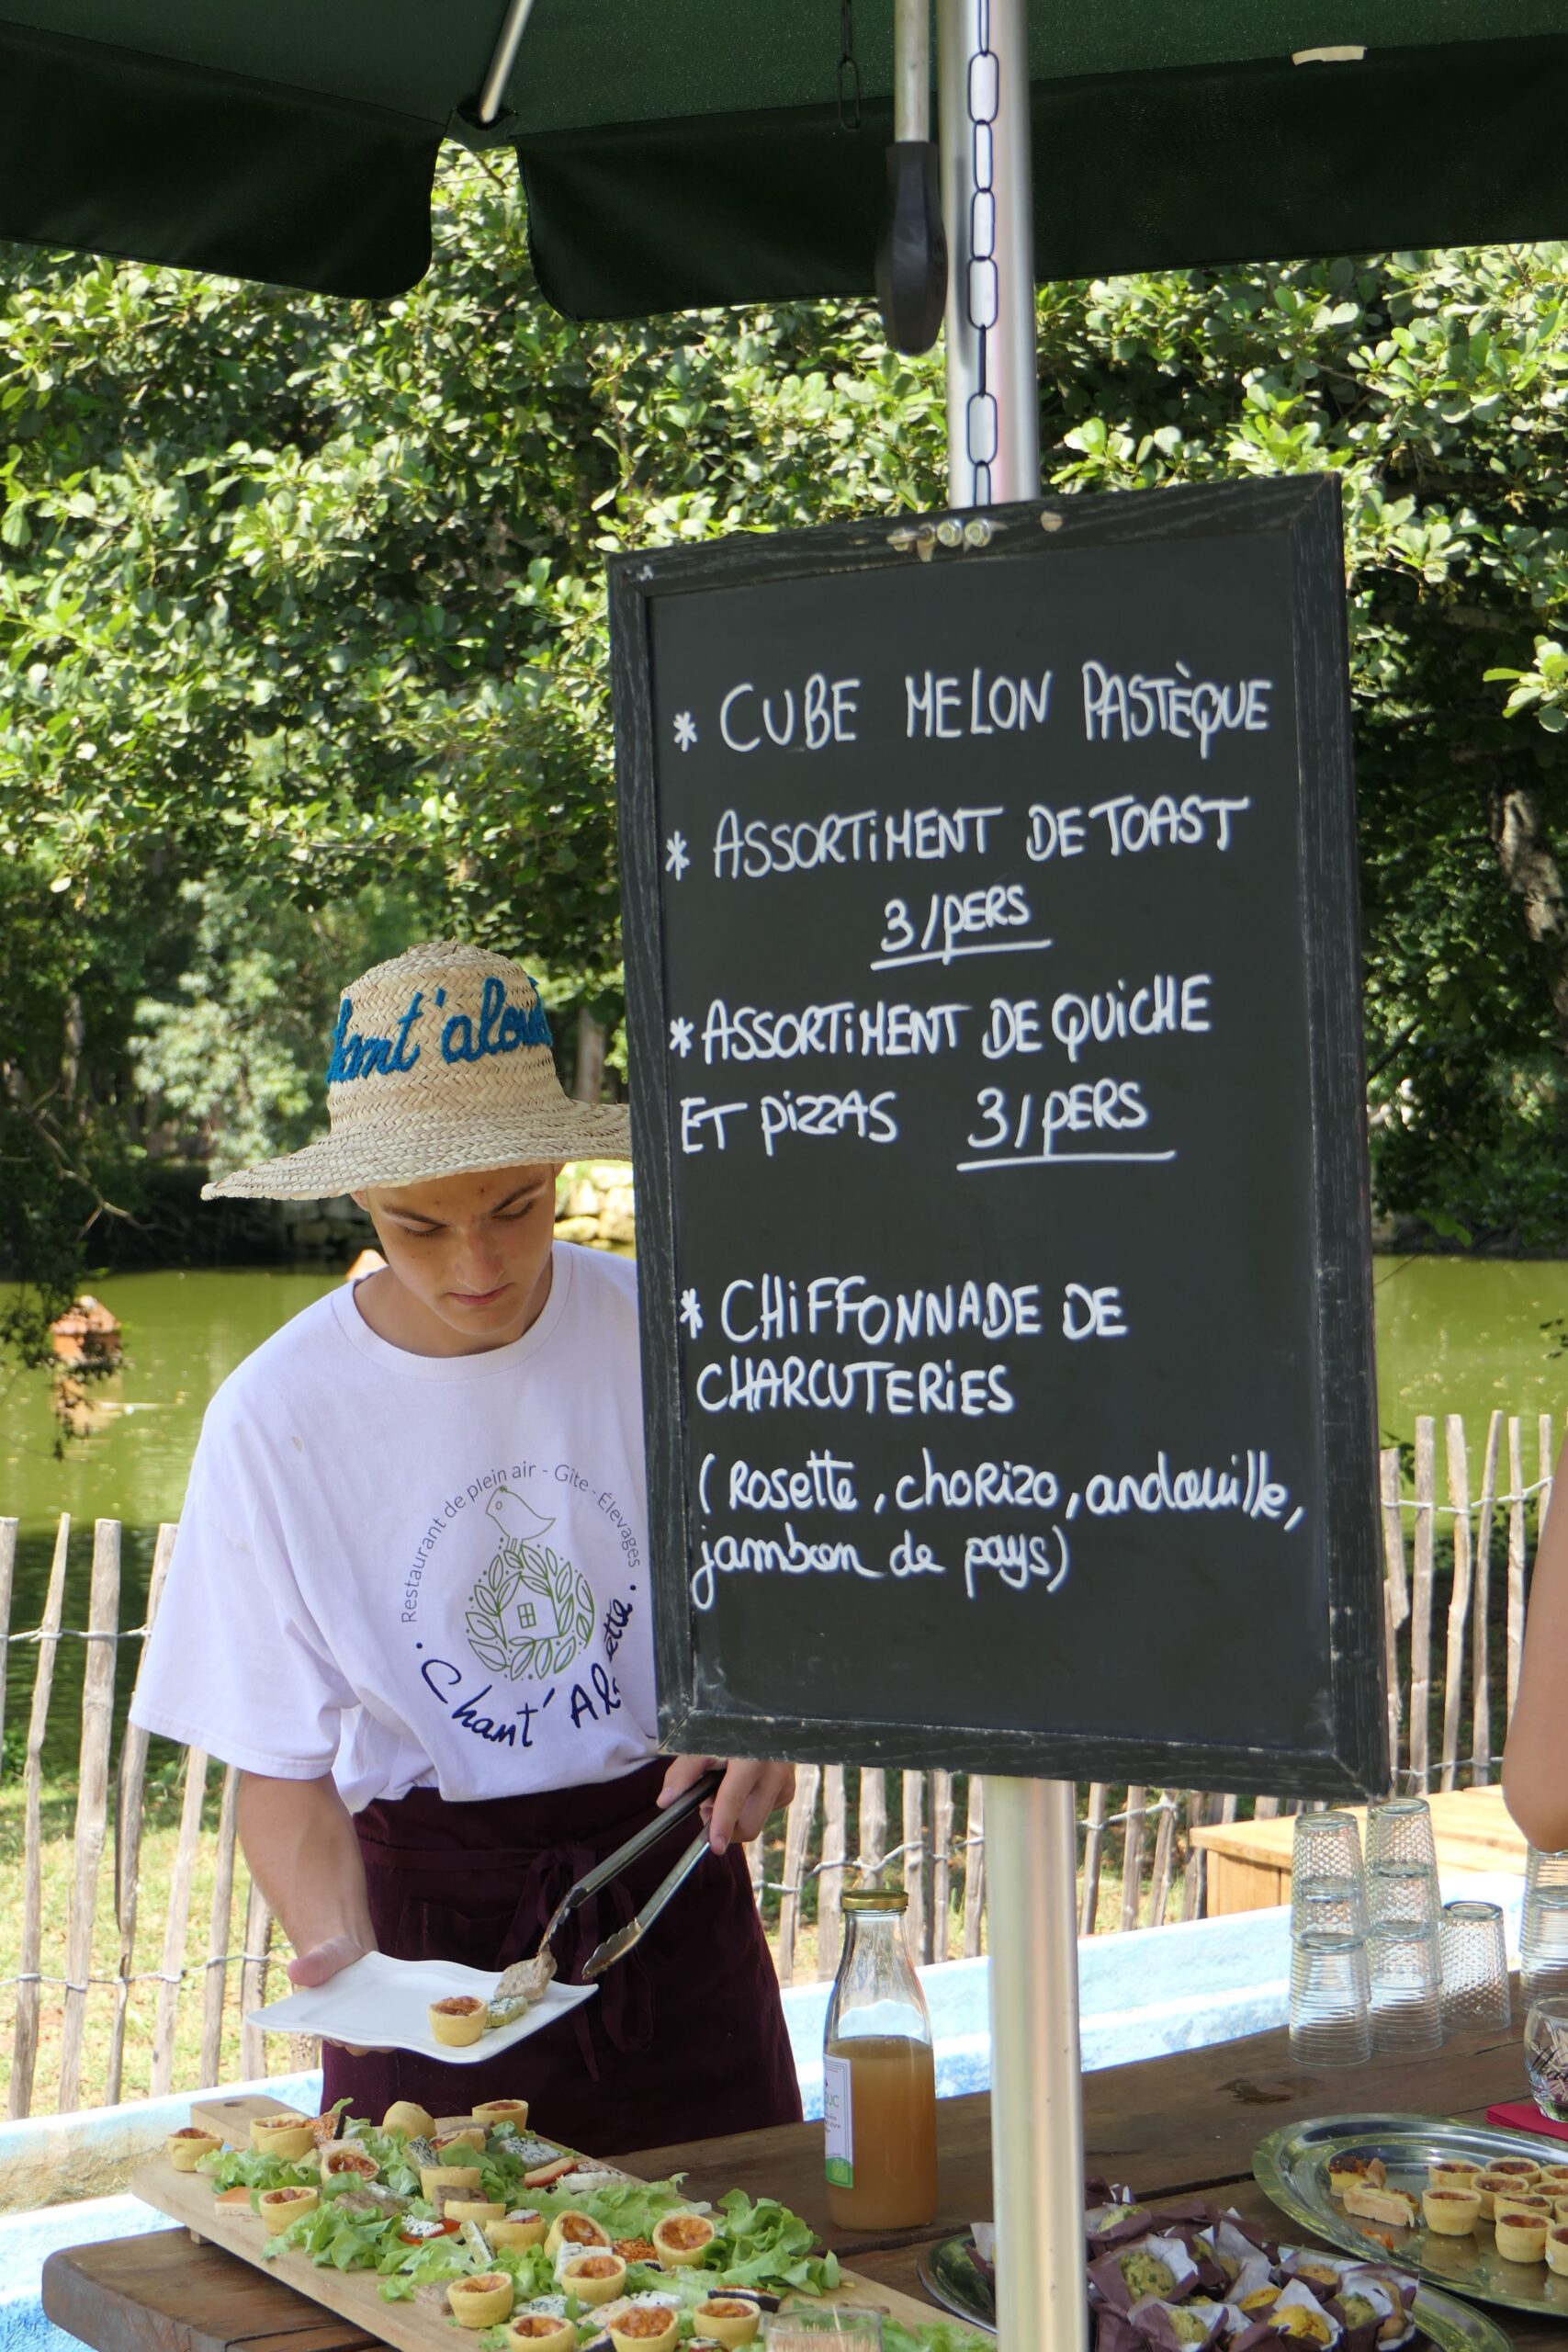 * CUBE MELON PASTÈQUE
* ASSORTIMENT DE TOAST
3/PERS
* ASSORTIMENT DE QUICHE
ET PIZZAS 3/PERS
* CHIFFONNADE DE
CHARCUTERIES
(Rosette, chorizo, andouille,
jambon de pays)
hant'aloue
Restaurant de plein air - Gîte - Élevages
• Chant' Al ette •